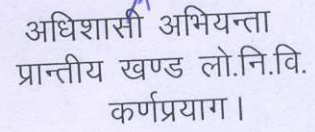 अधिशासी अभियन्ता
प्रान्तीय खण्ड लो.नि.वि.
कर्णप्रयाग।